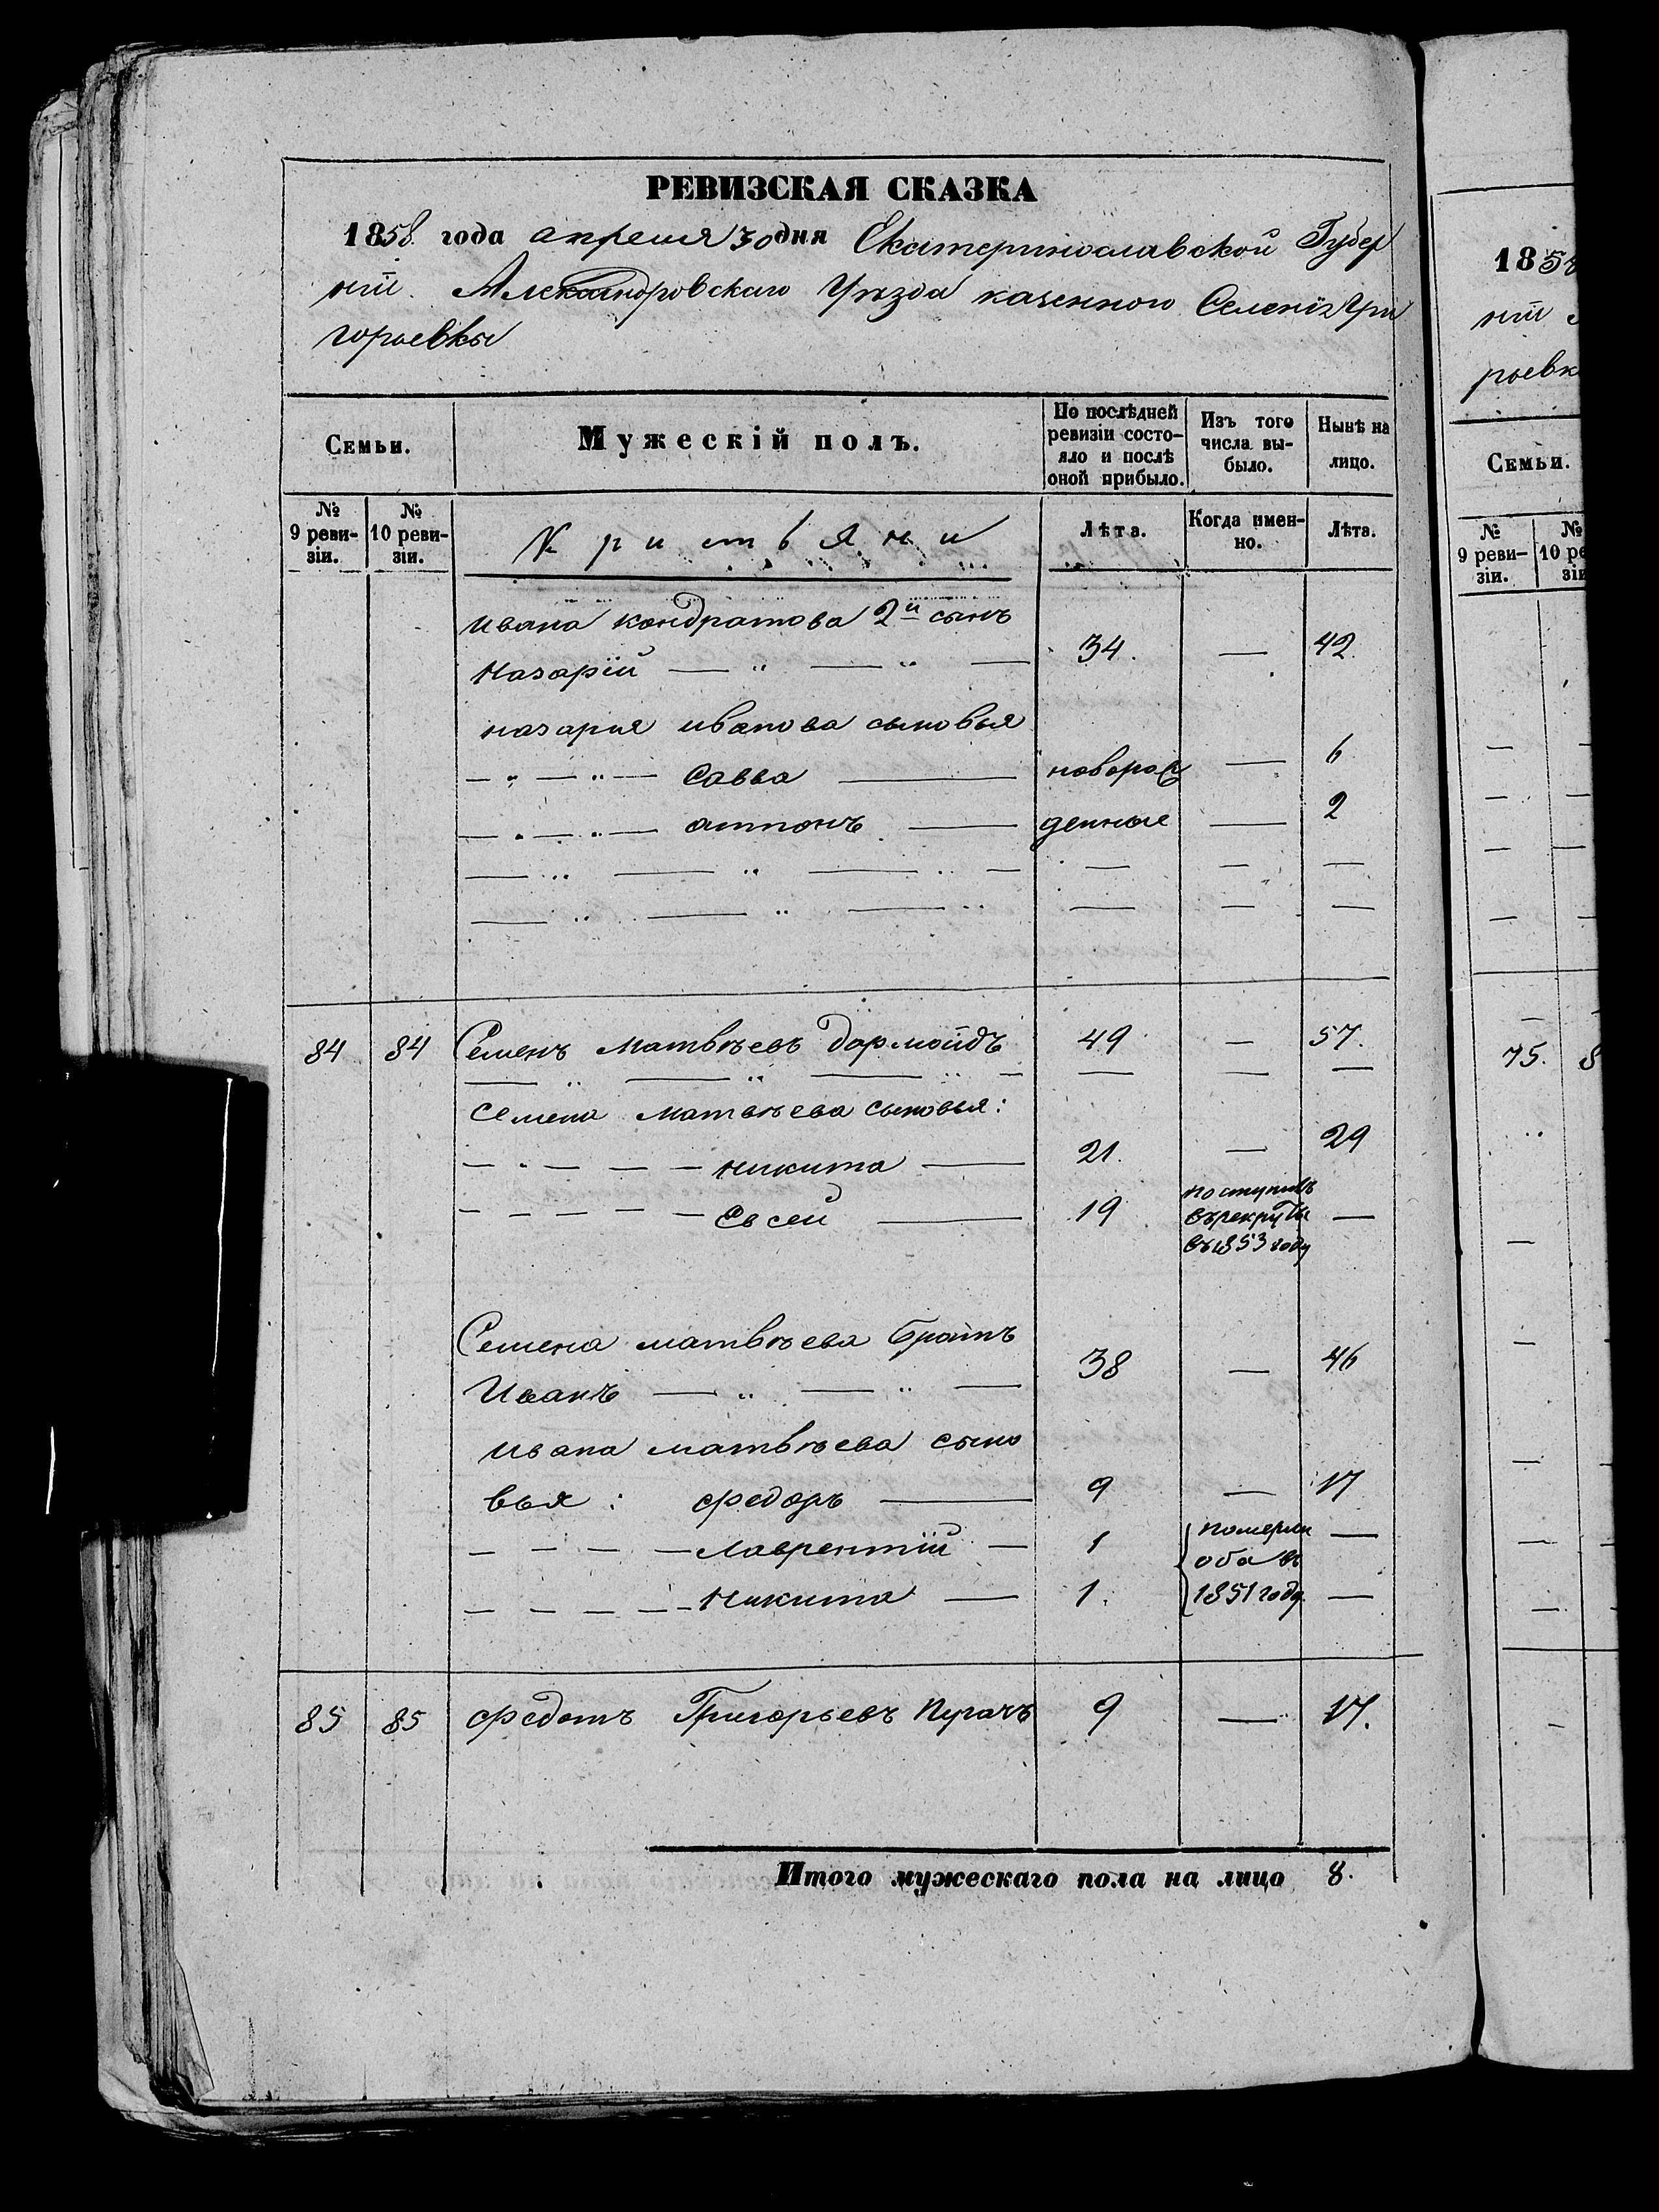 РЕВИЗСКАЯ СКАЗКА
1858. года апреля 30 дня Екатеринославской Губер
ніи. Александровскаго Уѣзда казенного Селенія Гри
горьевки
Семьи.
Мужескій полъ.
По послѣдней ревизіи состо-
яло и послѣ оной прибыло.
Изъ того числа вы-
было.
Нынѣ на лицо.
№ 9 реви-
зіи.
№ 10 реви-
зіи.
Кристьяни
Лѣта.
Когда имен-
но.
Лѣта.
Ивана кондратова 2й сынъ
Назарій — " — " — 34. — 42.
назария иванова сыновья
— " — " — Савва — новорож — 6
— " — " — антонъ — денные — 2
84 84 Семенъ Матвѣевъ дармоїдъ 49 — 57.
Семена Матвѣева сыновья:
— " — — — никита — 21. — 29
— — — — — Евсей — 19 поступилъ —
въ рекруты
въ 1853 году
Семена матвѣева братъ
Иванъ — " — " — 38 — 46
Ивана матвѣева сыно
вья: федоръ — 9 — 17
— — — — Лаврентій — 1 померли —
оба въ
— — — — Никита — 1. 1851 году —
85 85 федотъ Григорьевъ Пугачъ 9 — 17.
Итого мужескаго пола на лицо 8.
185
ніи
рьевк
Семьи.
№ 9 реви-
зіи.
№ 10 ре
зіи
75. 8